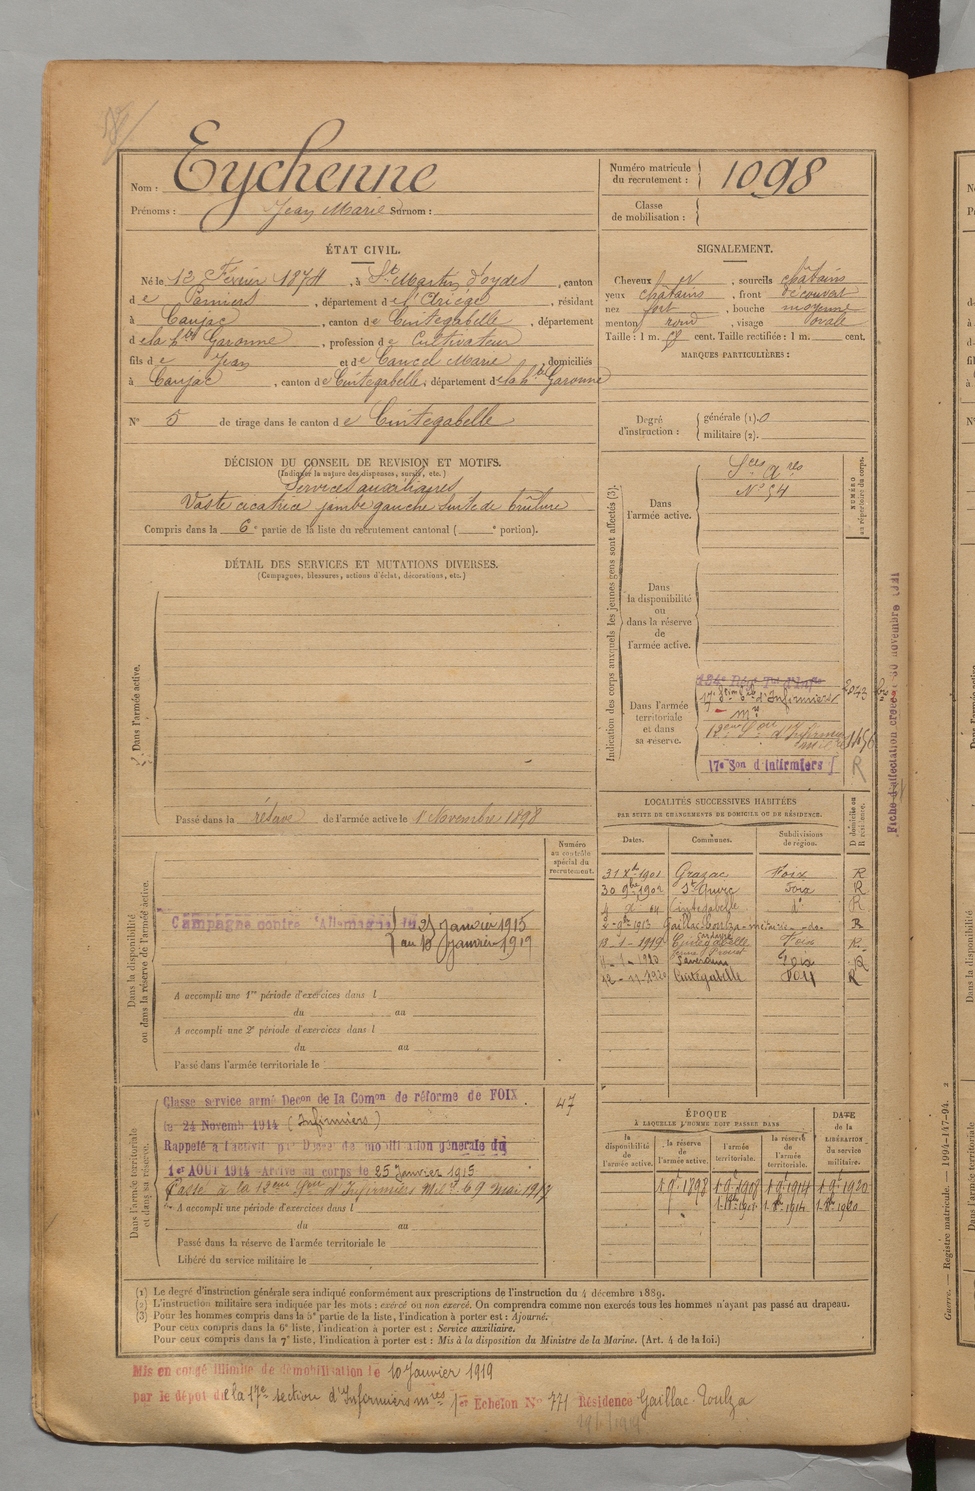 Nom : Eychenne
Prénoms : Jean Marie Surnom :
Numéro matricule du recrutement : 1098
Classe de mobilisation :
ÉTAT CIVIL.
Né le 12 Février 1874, à St Martin d'oydes, canton
de Pamiers, département de l'Ariège, résidant
à Caujac, canton de Cintegabelle, département
de la hte Garonne, profession de Cultivateur
fils de Jean et de Cancel Marie, domiciliés
à Caujac, canton de Cintegabelle, département de la hte Garonne
N° 5 de tirage dans le canton de Cintegabelle
SIGNALEMENT.
Cheveux , sourcils châtains
yeux châtains, front découvert
nez fort, bouche moyenne
menton rond, visage ovale
Taille : 1 m. cent. Taille rectifiée : 1 m. cent.
MARQUES PARTICULIÈRES :
Degré d'instruction : générale (1). 0
militaire (2).
DÉCISION DU CONSEIL DE REVISION ET MOTIFS.
(Indiquer la nature des dispenses, sursis, etc.)
Services auxiliaires
Vaste cicatrice jambe gauche suite de brûlure
Compris dans la 6e partie de la liste du recrutement cantonal ( e portion).
DÉTAIL DES SERVICES ET MUTATIONS DIVERSES.
(Campagnes, blessures, actions d'éclat, décorations, etc.)
Dans l'armée active.
Passé dans la réserve de l'armée active le 1 Novembre 1898
Indication des corps auxquels les jeunes gens sont affectés (3).
NUMÉRO au répertoire du corps.
Dans l'armée active.
Sces Ares
N° 54
Dans la disponibilité ou dans la réserve de l'armée active.
Dans l'armée territoriale et dans sa réserve.
17e Son d'infirmiers
R
Fiche d'affectation créée le 30 novembre 1911
LOCALITÉS SUCCESSIVES HABITÉES
PAR SUITE DE CHANGEMENTS DE DOMICILE OU DE RÉSIDENCE.
Dates. Communes. Subdivisions de région. D domicile ou R résidence.
31 Xbre 1901 Grazac Foix R
30 9bre 1902 Foix R
Cintegabelle do R
1913 Gaillac-Toulza R
13-1-1919 Cintegabelle Foix R
1-1920 Saverdun Foix R
12-11-1920 Cintegabelle Foix R
Dans la disponibilité ou dans la réserve de l'armée active.
Numéro au contrôle spécial du recrutement.
Campagne contre l'Allemagne du 25 janvier 1915
au 13 janvier 1919
A accompli une 1re période d'exercices dans l
du au
A accompli une 2e période d'exercices dans l
du au
Passé dans l'armée territoriale le
Dans l'armée territoriale et dans sa réserve.
47
Classe service armé Décon de la Comon de réforme de FOIX
le 24 Novemb 1914 (Infirmiers)
Rappelé à l'activité par Décret de mobilisation générale du
1er AOUT 1914 Arrivé au corps le 25 Janvier 1915
Passé à la 12eme Son d'Infirmiers Milres le 9 mai 1917
A accompli une période d'exercices dans l
du au
Passé dans la réserve de l'armée territoriale le
Libéré du service militaire le
ÉPOQUE
À LAQUELLE L'HOMME DOIT PASSER DANS
DATE de la LIBÉRATION du service militaire.
la disponibilité de l'armée active. la réserve de l'armée active. l'armée territoriale. la réserve de l'armée territoriale.
1 9e 1898 1 9e 1908 1 9e 1914 1 9e 1920
(1) Le degré d'instruction générale sera indiqué conformément aux prescriptions de l'instruction du 4 décembre 1889.
(2) L'instruction militaire sera indiquée par les mots : exercé ou non exercé. On comprendra comme non exercés tous les hommes n'ayant pas passé au drapeau.
(3) Pour les hommes compris dans la 5e partie de la liste, l'indication à porter est : Ajourné.
Pour ceux compris dans la 6e liste, l'indication à porter est : Service auxiliaire.
Pour ceux compris dans la 7e liste, l'indication à porter est : Mis à la disposition du Ministre de la Marine. (Art. 4 de la loi.)
Mis en congé illimité de démobilisation le 10 Janvier 1919
par le dépôt de la 17e section d'Infirmiers mres 1er Echelon N° 771 Résidence Gaillac-Toulza
Guerre. — Registre matricule. — 1994-147-94. 2